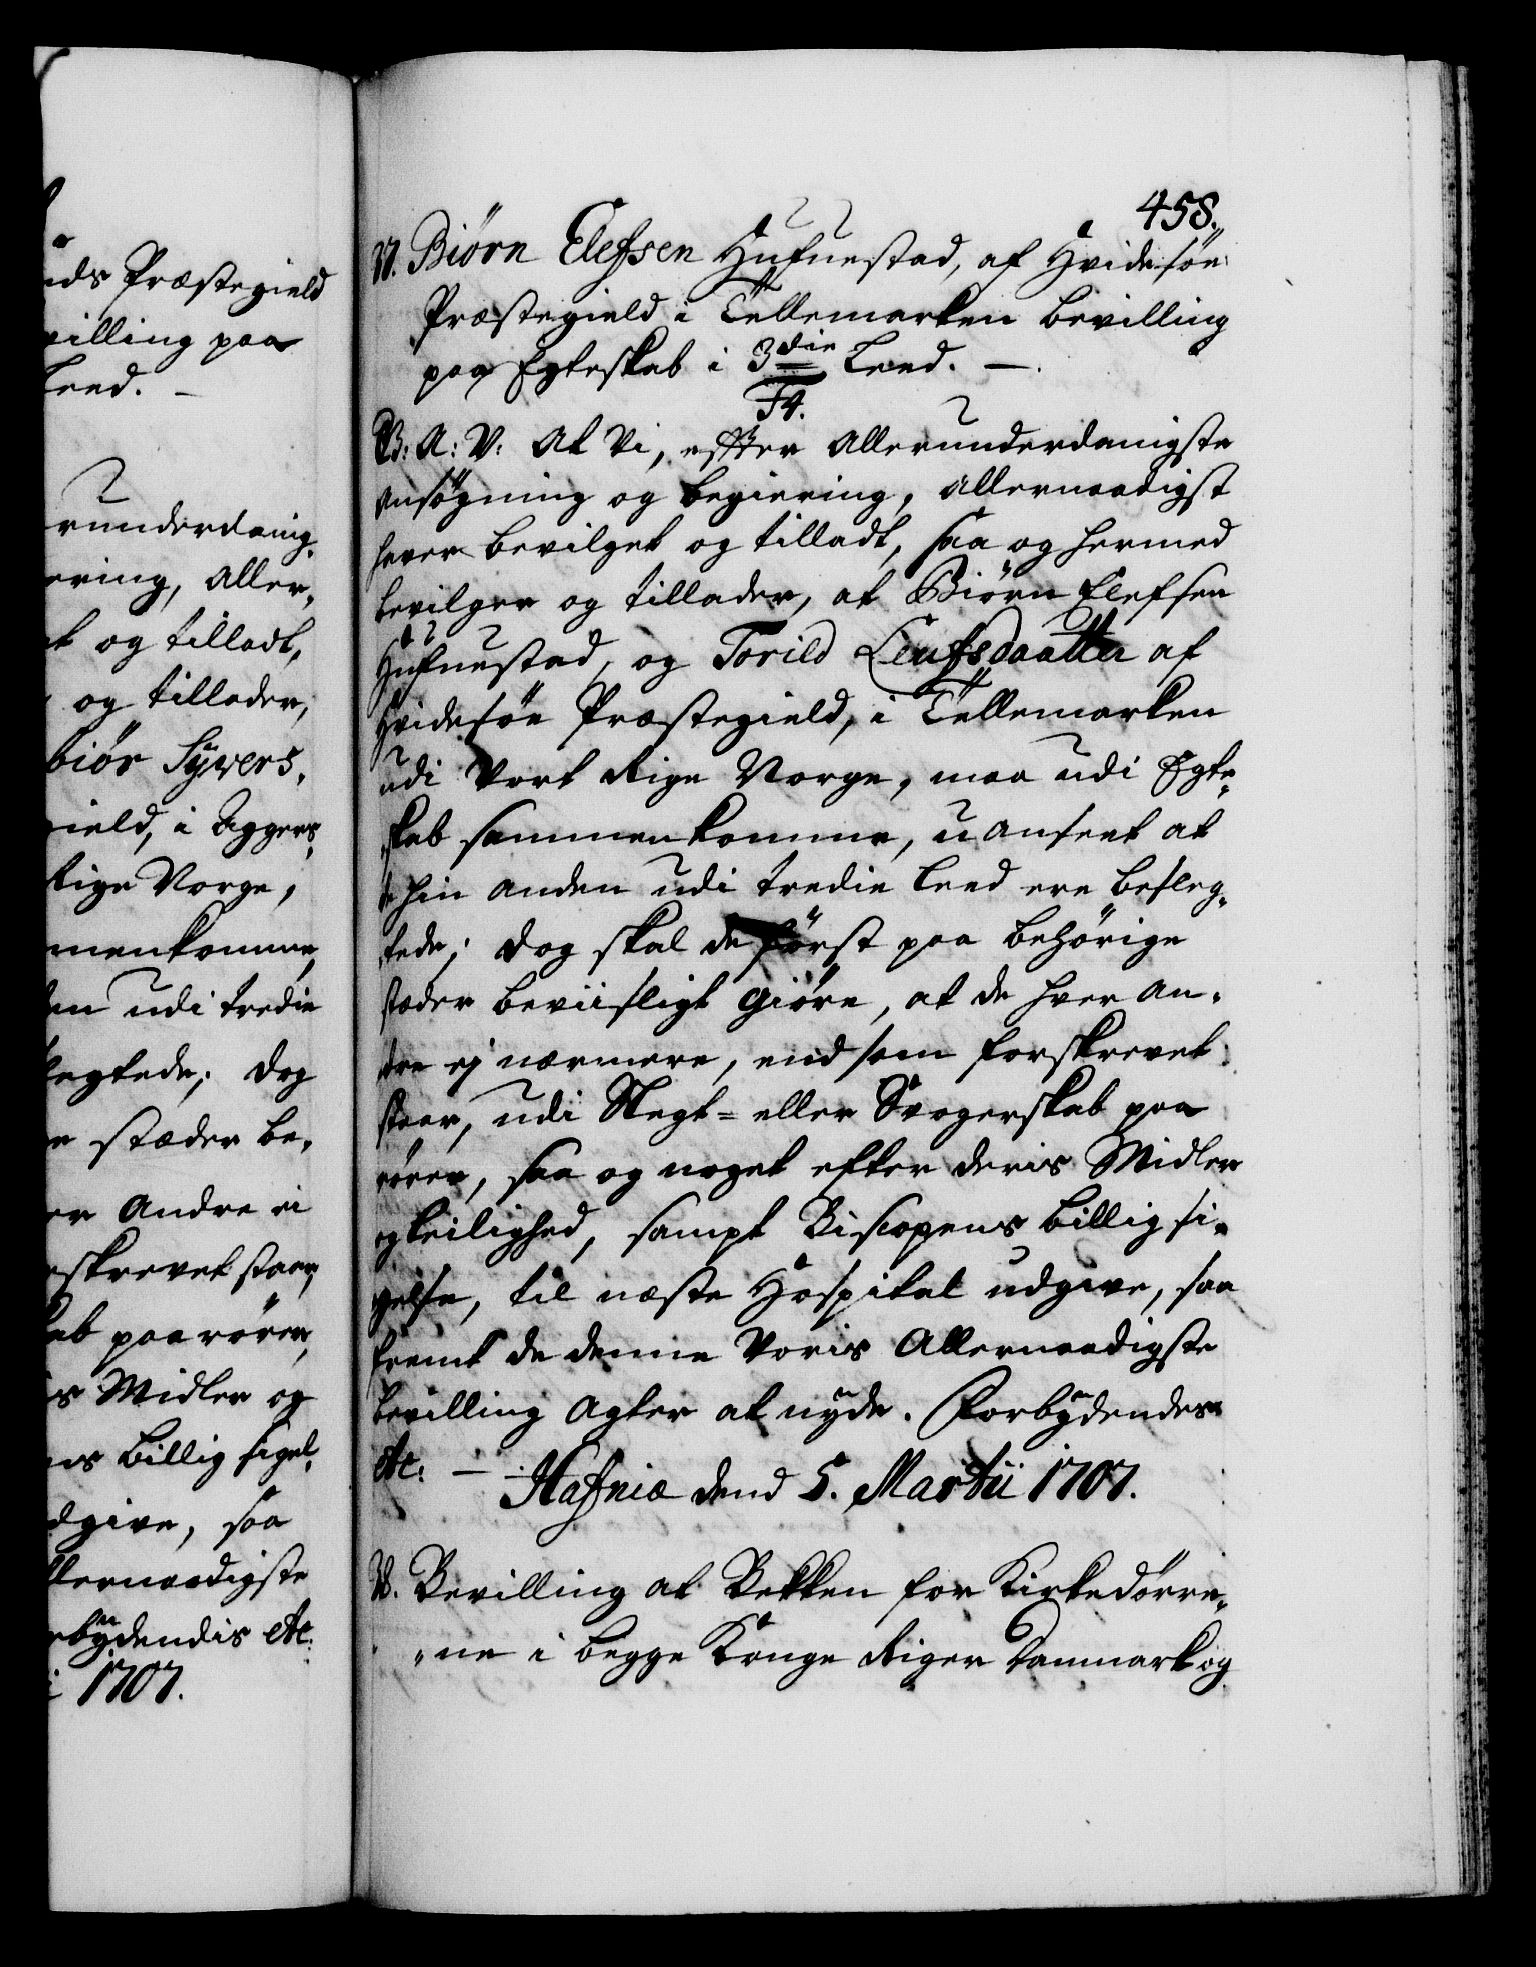 ids Præstegield
villing paa
Leed. -
runderdanig,
ering, Aller,
et og tilladt,
og tillader,
biør Syvers,
gield, i Aggers,
Rige Norge,
menkomme,
den udi tredie
legtede; dog
e stæder be,
er Andre ei
skrevet staar,
ab paarører,
is Midler og
ns billig sigel,
dgive, saa
llernaadigste
rbydendis etc:
i 1707.
458.
37. Biørn Elefsen Hufuestad, af Hvidesøe
Præstegield i Tellemarken bevilling
paa Egteskab i 3die Leed. —.
F4.
B: A: V: At Vi, efter Allerunderdanigste
ansøgning og begiering, Allernaadigst
hafver bevilget og tilladt, saa og hermed
bevilger og tillader, at Biørn Elefsen
Hufuestad, og Torild Leufsdaatter af
Hvidesøe Præstegield, i Tellemarken
udi Vort Rige Norge, maa udi Egte,
skab sammenkomme, uanseet at
de hin anden udi tredie Leed ere besleg,
tede; dog skal de først paa behørige
stæder beviisligt giøre, at de hver an,
dre ej nærmere, end som forskrevet
staar, udi Slegt= eller Svogerskab paa
rører, saa og noget efter deris Midler
og leilighed, sampt Biscopens billig si,
gelse, til næste Hospital udgive, saa
fremt de denne Voris Allernaadigste
bevilling agter at nyde. Forbydendes
etc: — Hafniæ dend 5. Martii 1707.
38. Bevilling at Bekken for Kirkedørre,
„ne i begge Konge Riger Danmark og